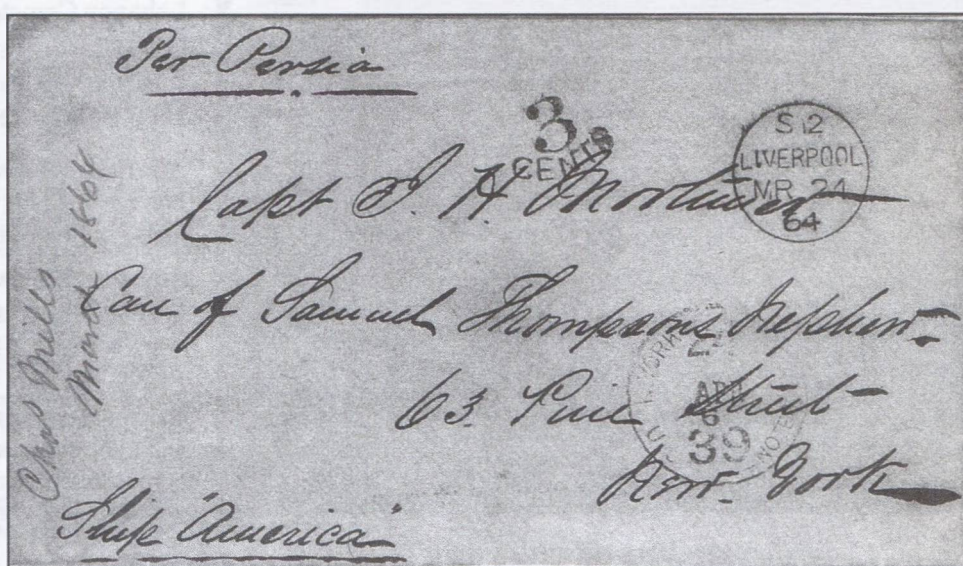 Per Persia
3
CENTS
S 12
LIVERPOOL
MR 24
64
Capt S. H. Mortimer
Care of Samuel Thompsons Nephew
63 Pine Street
New York
39
Ship "America"
Chas Mills
March 1864